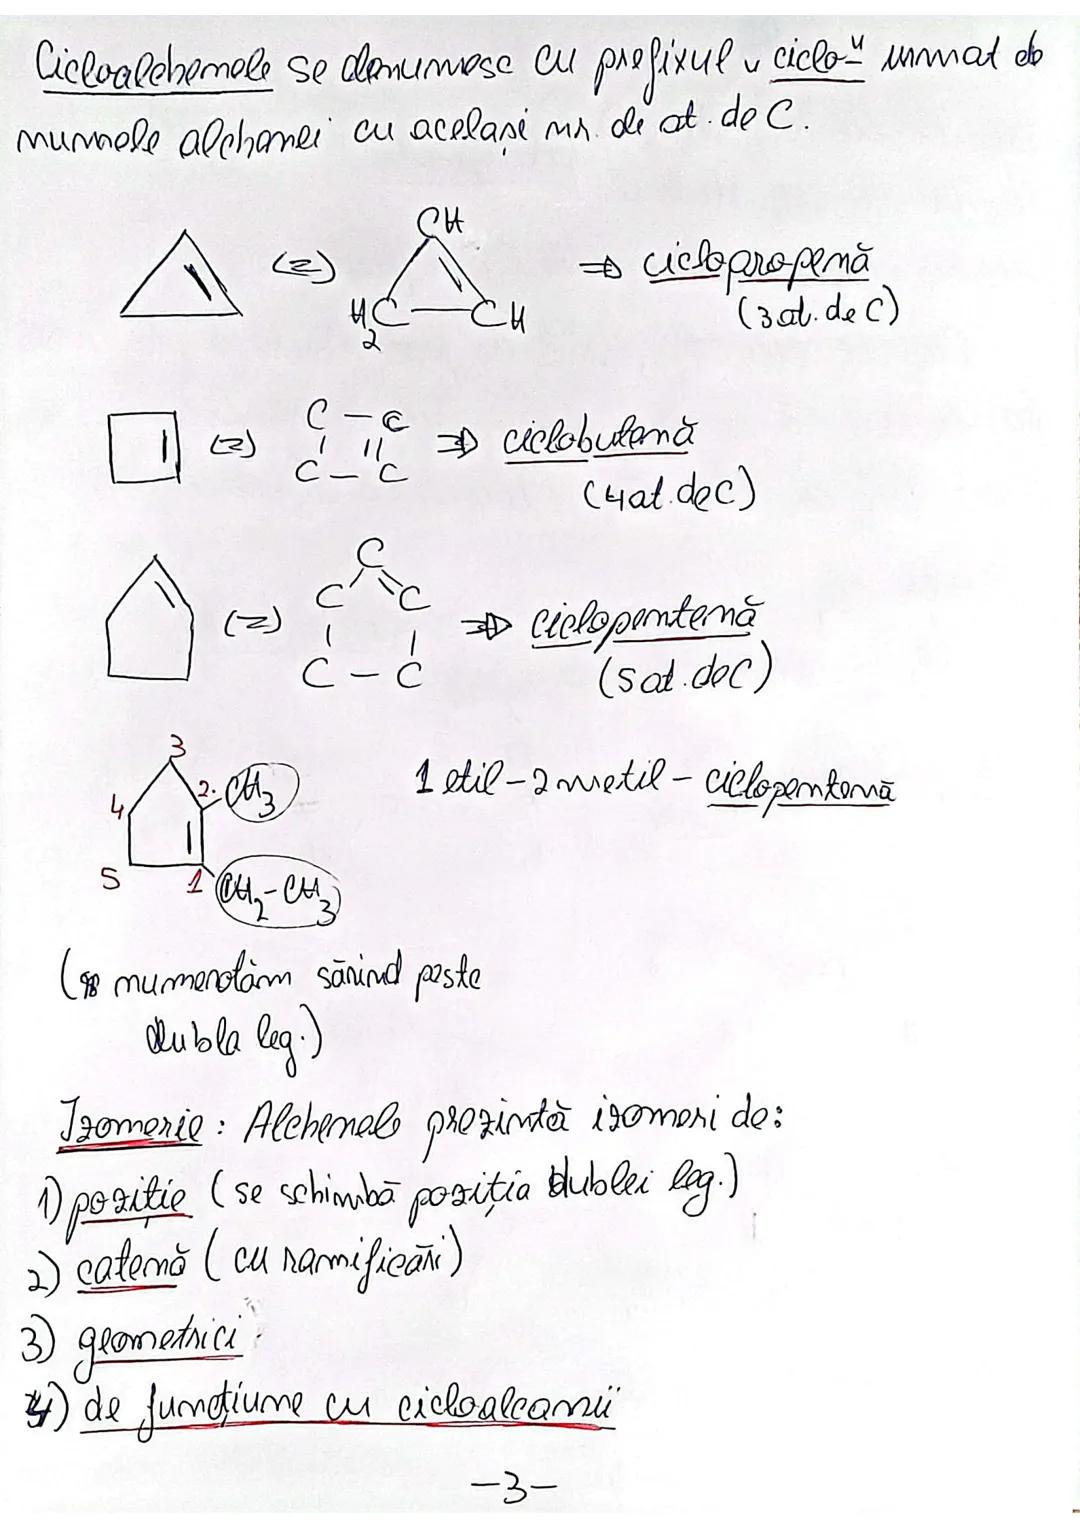 Cicloalchenele se denumesc cu prefixul „ciclo-" urmat de
numele alchenei cu același nr. de at. de C.
CH
(=)
⇒ ciclopropenă
H2C — CH
(3 at. de C)
C — C
(=)
⇒ ciclobutenă
C — C
(4 at. de C)
C
C C
(=)
⇒ ciclopentenă
C — C
(5 at. de C)
3
4 2. CH3
1 etil-2 metil-ciclopentenă
5 1 CH2-CH3
(numerotăm sărind peste
dubla leg.)
Izomerie: Alchenele prezintă izomeri de:
1) poziție (se schimbă poziția dublei leg.)
2) catenă (cu ramificări)
3) geometrici
4) de funcțiune cu cicloalcanii
-3-